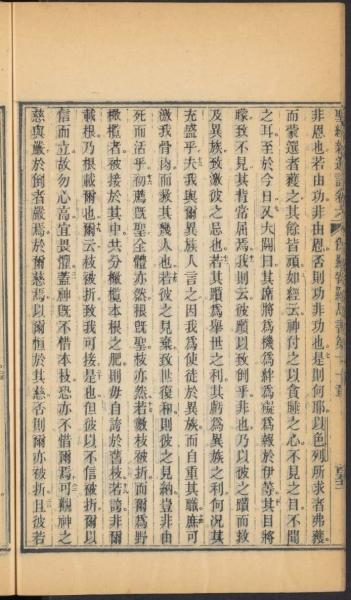 非恩也若由功非由恩否則功非功也是則何耶以色列所求者弗獲
而蒙選者獲之其餘皆頑如經云神付之以貪睡之心不見之目不聞
之耳至於今日又大闢曰其席將為機為絆為檻為報於伊等其目將
矇致不見其背常屈焉我則云彼躓以致倒乎非也乃以彼之躓而救
及異族致激彼之忌也若其躓為舉世之利其虧為異族之利何況其
充盛乎夫我與爾異族人言之因我為使徒於異族而自重其職庶可
激我骨肉而救其幾人也若彼之見棄致世復和則彼之見納豈非由
死而活乎初薦既聖全體亦然根既聖枝亦然若數枝被折而爾為野
橄欖者被接於其中共分橄欖本根之肥則毋自誇於舊枝若誇非爾
載根乃根載爾也爾云枝被折致我可接是也但彼以不信被折爾以
信而立故勿心高宜畏懼蓋神既不惜本枝恐亦不惜爾焉可觀神之
慈與嚴於倒者嚴焉於爾慈焉以爾恒於其慈否則爾亦被折且彼若